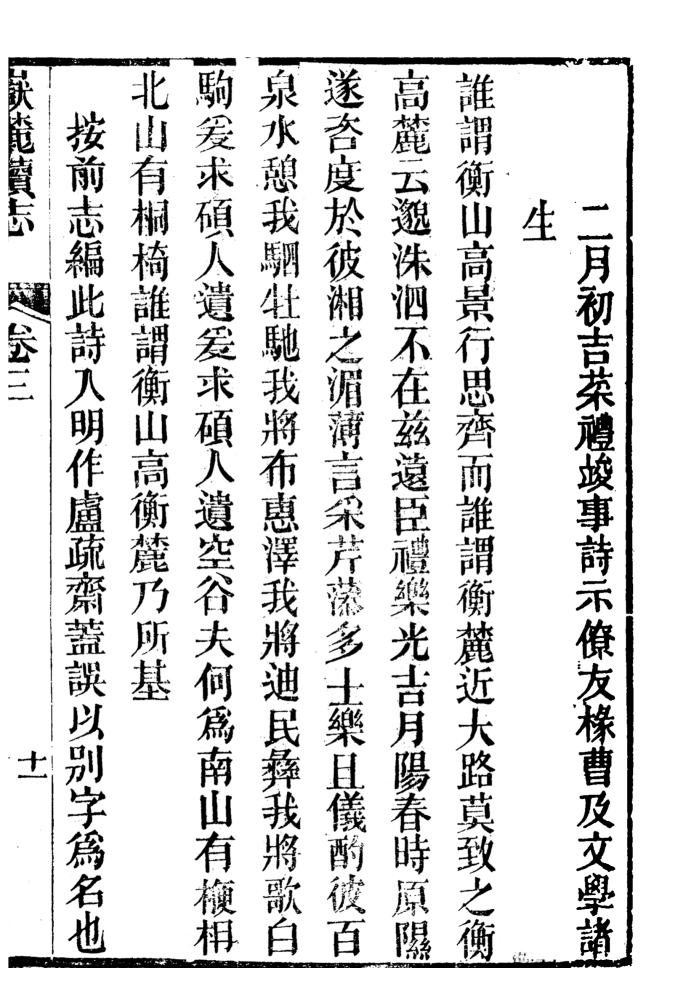 二月初吉菜禮竣事詩示僚友椽曹及文學諸
生
誰謂衡山高景行思齊而誰謂衡麓近大路莫致之衡
高麓云邈洙泗不在兹遠臣禮樂光吉月陽春時原隰
遂咨度於彼湘之湄薄言采芹藻多士樂且儀酌彼百
泉水憩我駰牡馳我將布惠澤我將迪民彝我將歌白
駒爰求碩人遺爰求碩人遺空谷夫何爲南山有榎栩
北山有桐椅誰謂衡山高衡麓乃所基
按前志編此詩入明作盧疏齋蓋誤以別字爲名也
嶽麓續志
卷三
十一